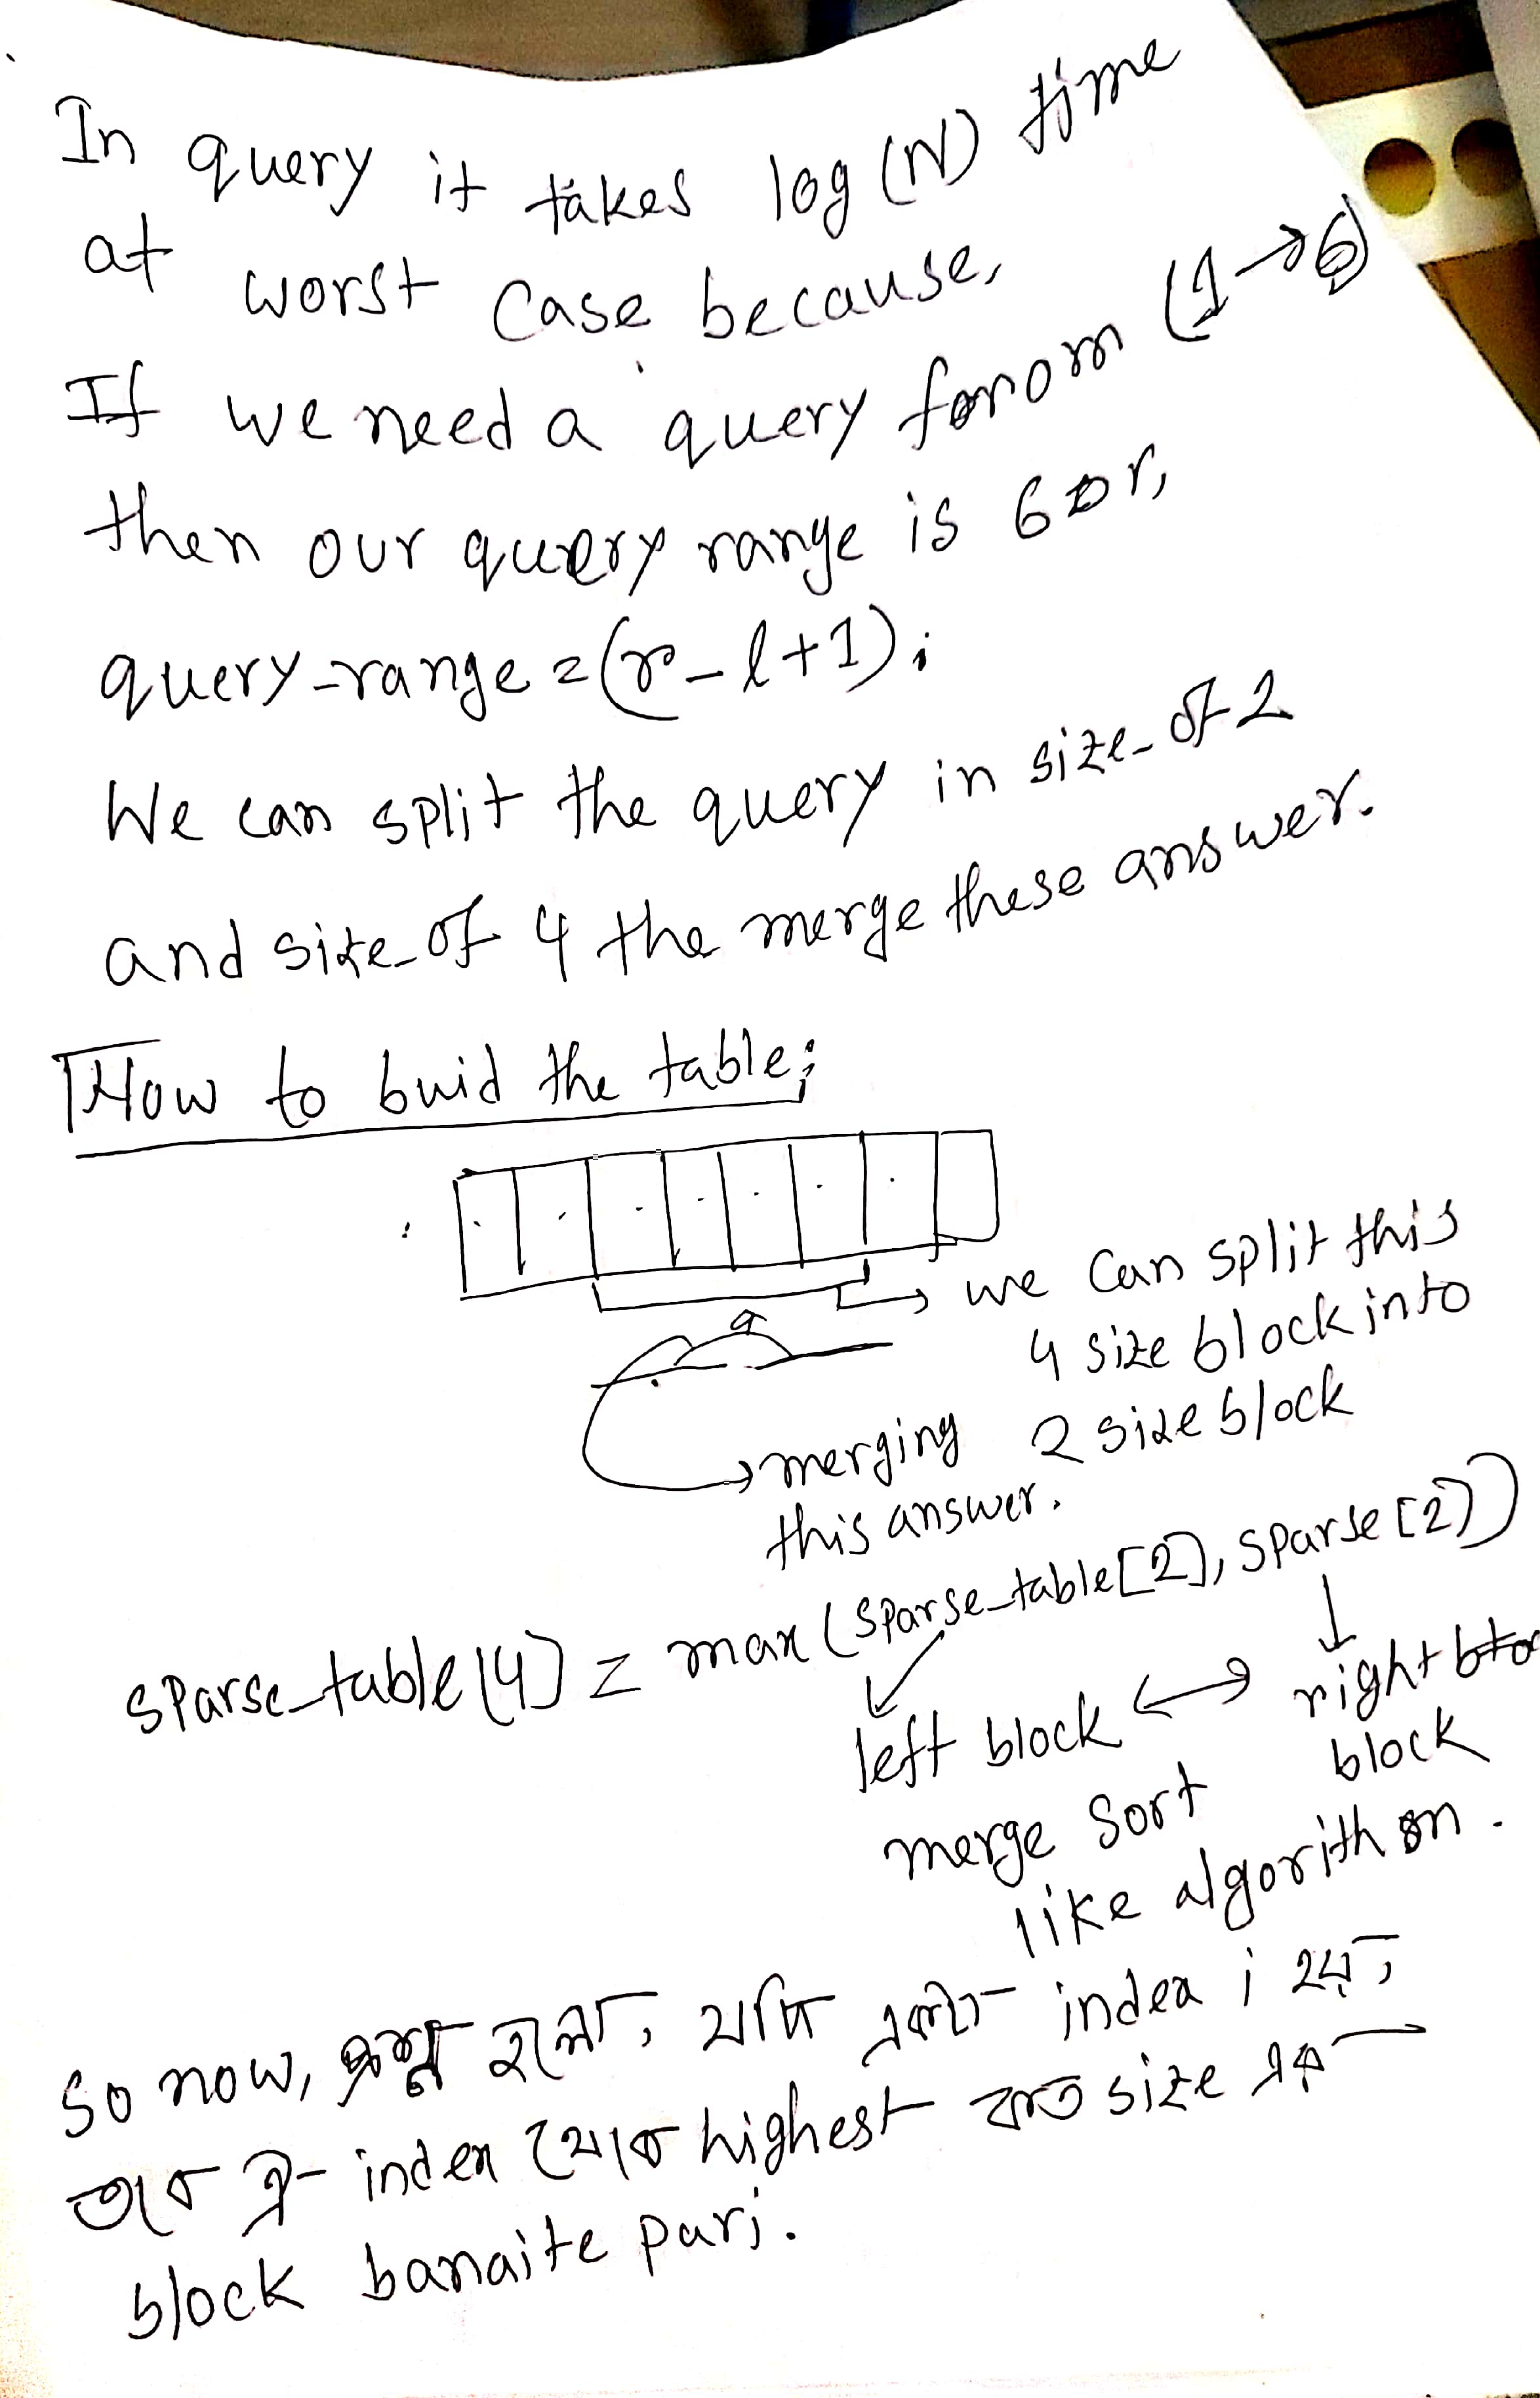 In query it takes log(N) time
at worst case because,
If we need a query from (1→6)
then our query range is 6 or,
query-range = (r-l+1);
We can split the query in size-of 2
and size-of 4 the merge these answer.
How to buid the table;
we can split this
4 size block into
2 size block
merging
this answer.
sparse_table[4] = max(sparse_table[2], sparse[2])
left block ↔ right
block
merge sort
like algorithm.
So now, প্রশ্ন হলো, যদি একটা index i হয়,
তবে ঐ index থেকে highest কত size এর
block banaite pari.